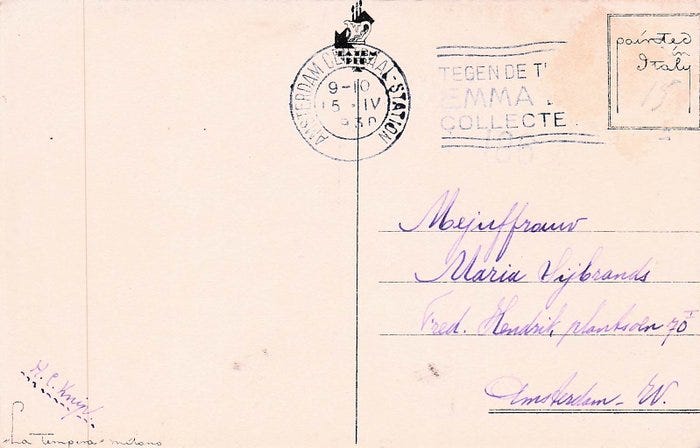 LA TEM
PERA
AMSTERDAM CENTRAAL-STATION
9-10
15 . IV
1930
TEGEN DE T
EMMA
COLLECTE
painted
in
Italy
15
Mejuffrouw
Maria Sijbrands
Fred. Hendrik plantsoen 70 I
Amsterdam-W.
H. C. Knip
La tempera - milano